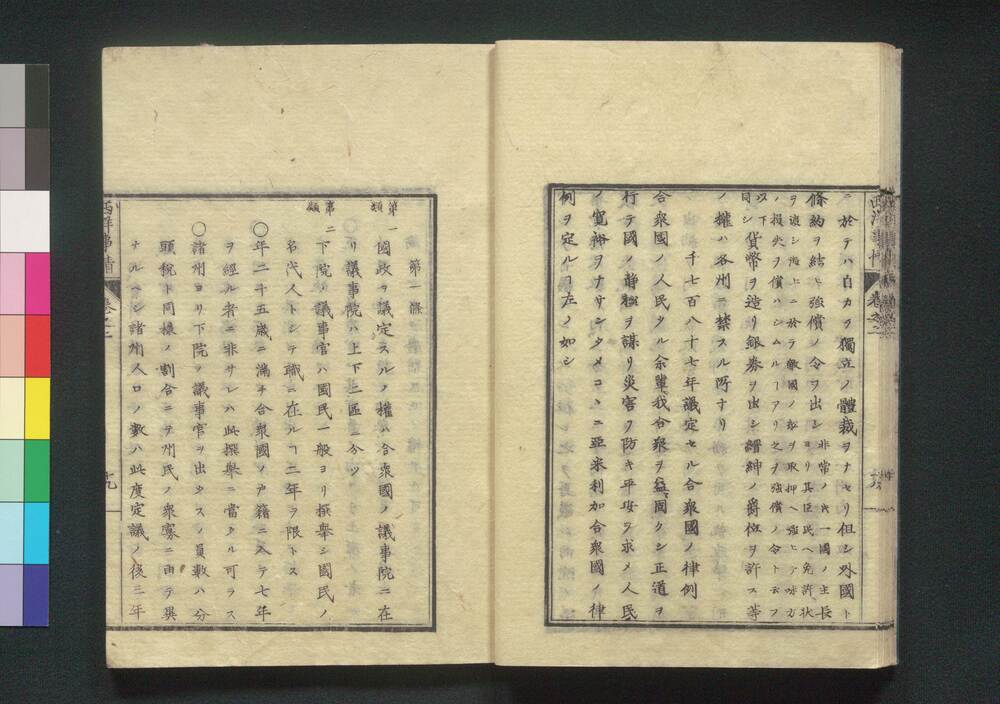 ニ於テハ自カラ獨立ノ體裁ヲナセリ但シ外國ト
條約ヲ結ヒ強償ノ令ヲ出シ非常ノ時一國ノ主長ヨリ其臣民ヘ免許状
ヲ渡シ海上ニ於テ敵國ノ船ヲ取押ヘ強ヒテ味方
ノ損失ヲ償ハシムルヿアリ之ヲ強償ノ令ト云フ
以下同シ貨幣ヲ造リ銀券ヲ出シ縉紳ノ爵位ヲ許ス等
ノ權ハ各州ニ禁スル所ナリ
千七百八十七年議定セル合衆國ノ律例
合衆國ノ人民タル余輩我合衆ヲ益固クシ正道ヲ
行テ國ノ静謐ヲ謀リ災害ヲ防キ平安ヲ求メ人民
ノ寛裕ヲナサンタメコヽニ亞米利加合衆國ノ律
例ヲ定ルヿ左ノ如シ
西洋事情 卷之二
第一條
第一類 國政ヲ議定スルノ權ハ合衆國ノ議事院ニ在
リ議事院ハ上下二區ニ分ツ
第二類 下院ノ議事官ハ國民一般ヨリ撰擧シ國民ノ
名代人トシテ職ニ在ルヿ二年ヲ限トス
〇年二十五歳ニ満チ合衆國ノ戸籍ニ入テ七年
ヲ經ル者ニ非サレハ此撰擧ニ當タル可ラス
〇諸州ヨリ下院ノ議事官ヲ出タスノ員數ハ分
頭税ト同様ノ割合ニテ州民ノ衆寡ニ由テ異
ナルヘシ諸州人口ノ數ハ此度定議ノ後三年
西洋事情 卷之二 九